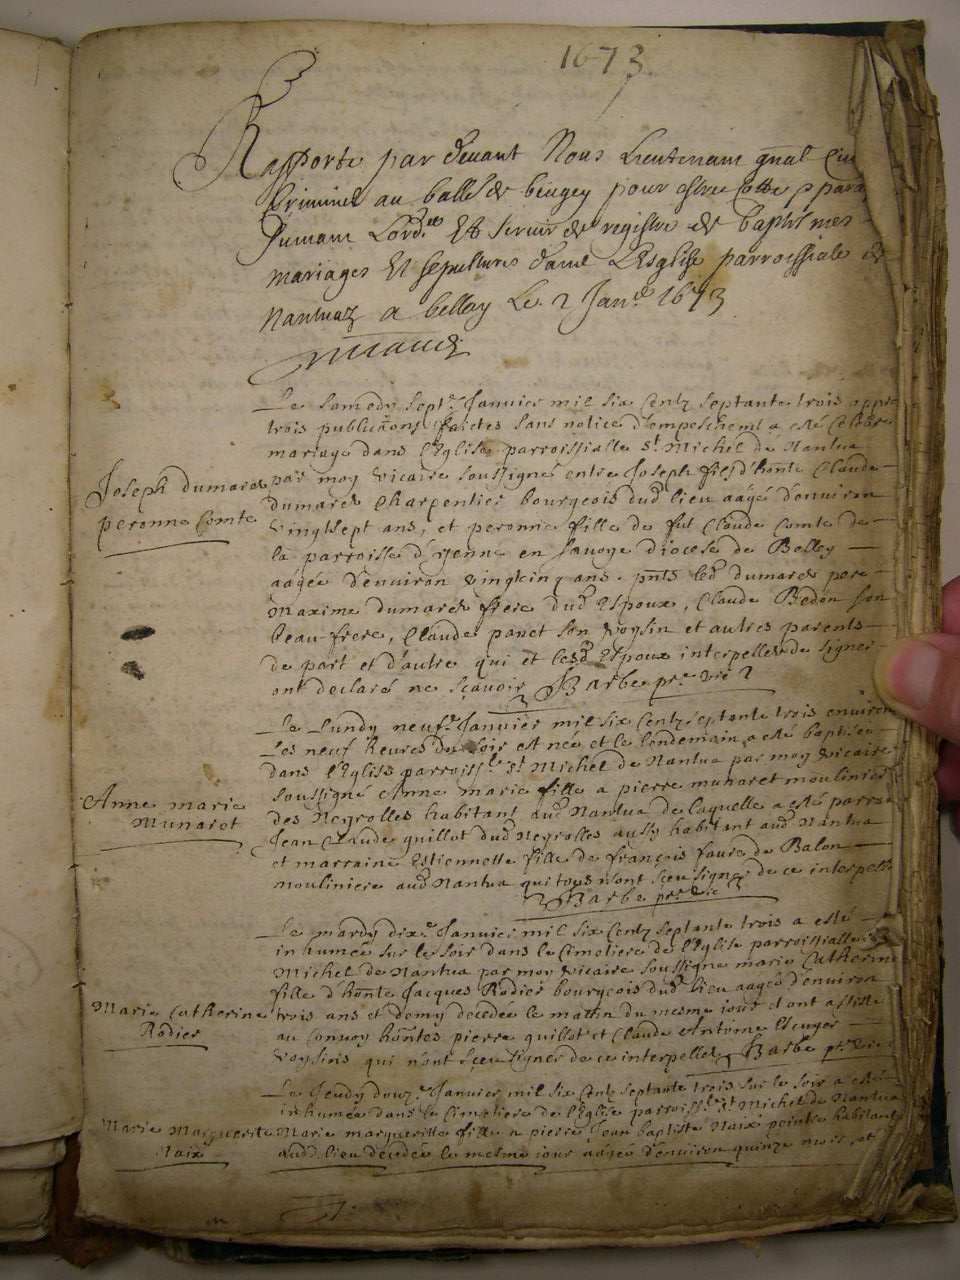 1673
Rapporté par devant Nous Lieutenant gnāl Civ
Criminel au balle de beugey pour estre Cotté p para
Suivant Lord.ce Et servir de registre de baptismes
mariages Et sepultures dans L'Esglise parroissiale de
Nantuaz a belley Le 2 Janr. 1673
Le samedy sept.e Janvier mil six Centz septante trois appre
trois publicāons faictes sans notice d'empeschemt a esté Célébré
mariage dans l'Eglise parroissialle St Michel de Nantua
Joseph Dumarest
par moy vicaire soussigné entre Joseph fils d'honte Claude
dumarest Charpentier bourgeois dud lieu aâgé d'environ
peronne Comte
vingtsept ans, et peronne fille de fut Claude Comte de
la parroisse d'yenne en savoye diocese de Belley
aâgée d'environ vingtcinq ans. pnts led dumarest pere
Maxime dumarest frere dud Espoux, Claude Bedon son
beau frere, Claude panet son voysin et autres parents
de part et d'autre qui et lesd Espoux interpellez de signer
ont declaré ne sçavoir Barbe ptre vic
Le Lundy neuf.e Janvier mil six Centz septante trois environ
les neuf heures du soir est née et le lendemain a esté baptisée
dans l'Eglise parroiss.le St Michel de Nantua par moy vicaire
Anne marie
soussigné Anne marie fille a pierre munaret moulinier
Munaret
des Neyrolles habitant aud Nantua de laquelle a esté parrain
Jean Claude guillot dud Neyrolles aussy habitant aud Nantua
et marraine Estiennette fille de françois faure de Balon
mouliniere aud Nantua qui tous n'ont sçeu signer de ce interpellé
Barbe ptre vic
Le mardy dix.e Janvier mil six Centz septante trois a esté
inhumée sur le soir dans le cimetiere de l'Eglise parroissialle St
Michel de Nantua par moy vicaire soussigné marie Catherine
fille d'honte Jacques Rodier bourgeois dud lieu aagée d'environ
Marie Catherine
trois ans et demy decedée le matin du mesme jour et ont assisté
Rodier
au convoy hontes pierre guillot et Claude Antoine Escuyer
voysins qui n'ont sçeu signer de ce interpellez Barbe ptre vic
Le Jeudy douz.e Janvier mil six Centz septante trois sur le soir a esté
inhumée dans le Cimetiere de l'Eglise parroiss.le St Michel de Nantua
Marie Marguerite
Marie margueritte fille a pierre Jean baptiste Naix peintre habitant
Naix
aud lieu decedée le mesme jour aagée d'environ quinze mois et